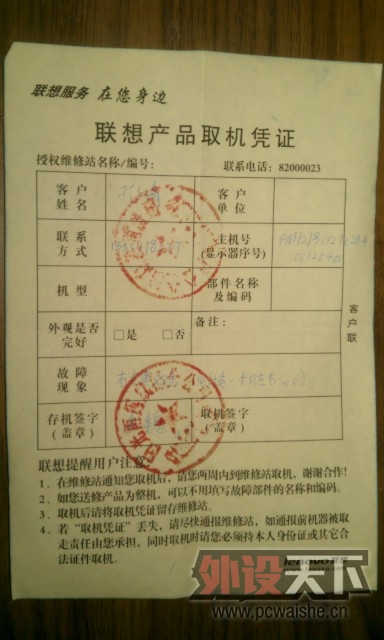 联想服务 在您身边
联想产品取机凭证
授权维修站名称/编号: 联系电话: 82000023
客户姓名
客户单位
联系方式
主机号(显示器序号)
机型
部件名称及编码
外观是否完好 □是 □否 备注:
故障现象
存机签字(盖章)
取机签字(盖章)
客户联
联想提醒用户注意:
1、在维修站通知您取机后,请您两周内到维修站取机,谢谢合作!
2、如您送修产品为整机,可以不用填写故障部件的名称和编码。
3、取机后请将取机凭证留存维修站。
4、若“取机凭证”丢失,请尽快通报维修站,如通报前机器被取
走责任由您承担,同时取机时请您必须持本人身份证或其它合
法证件取机。
lenovo
外设天下
www.pcwaishe.cn